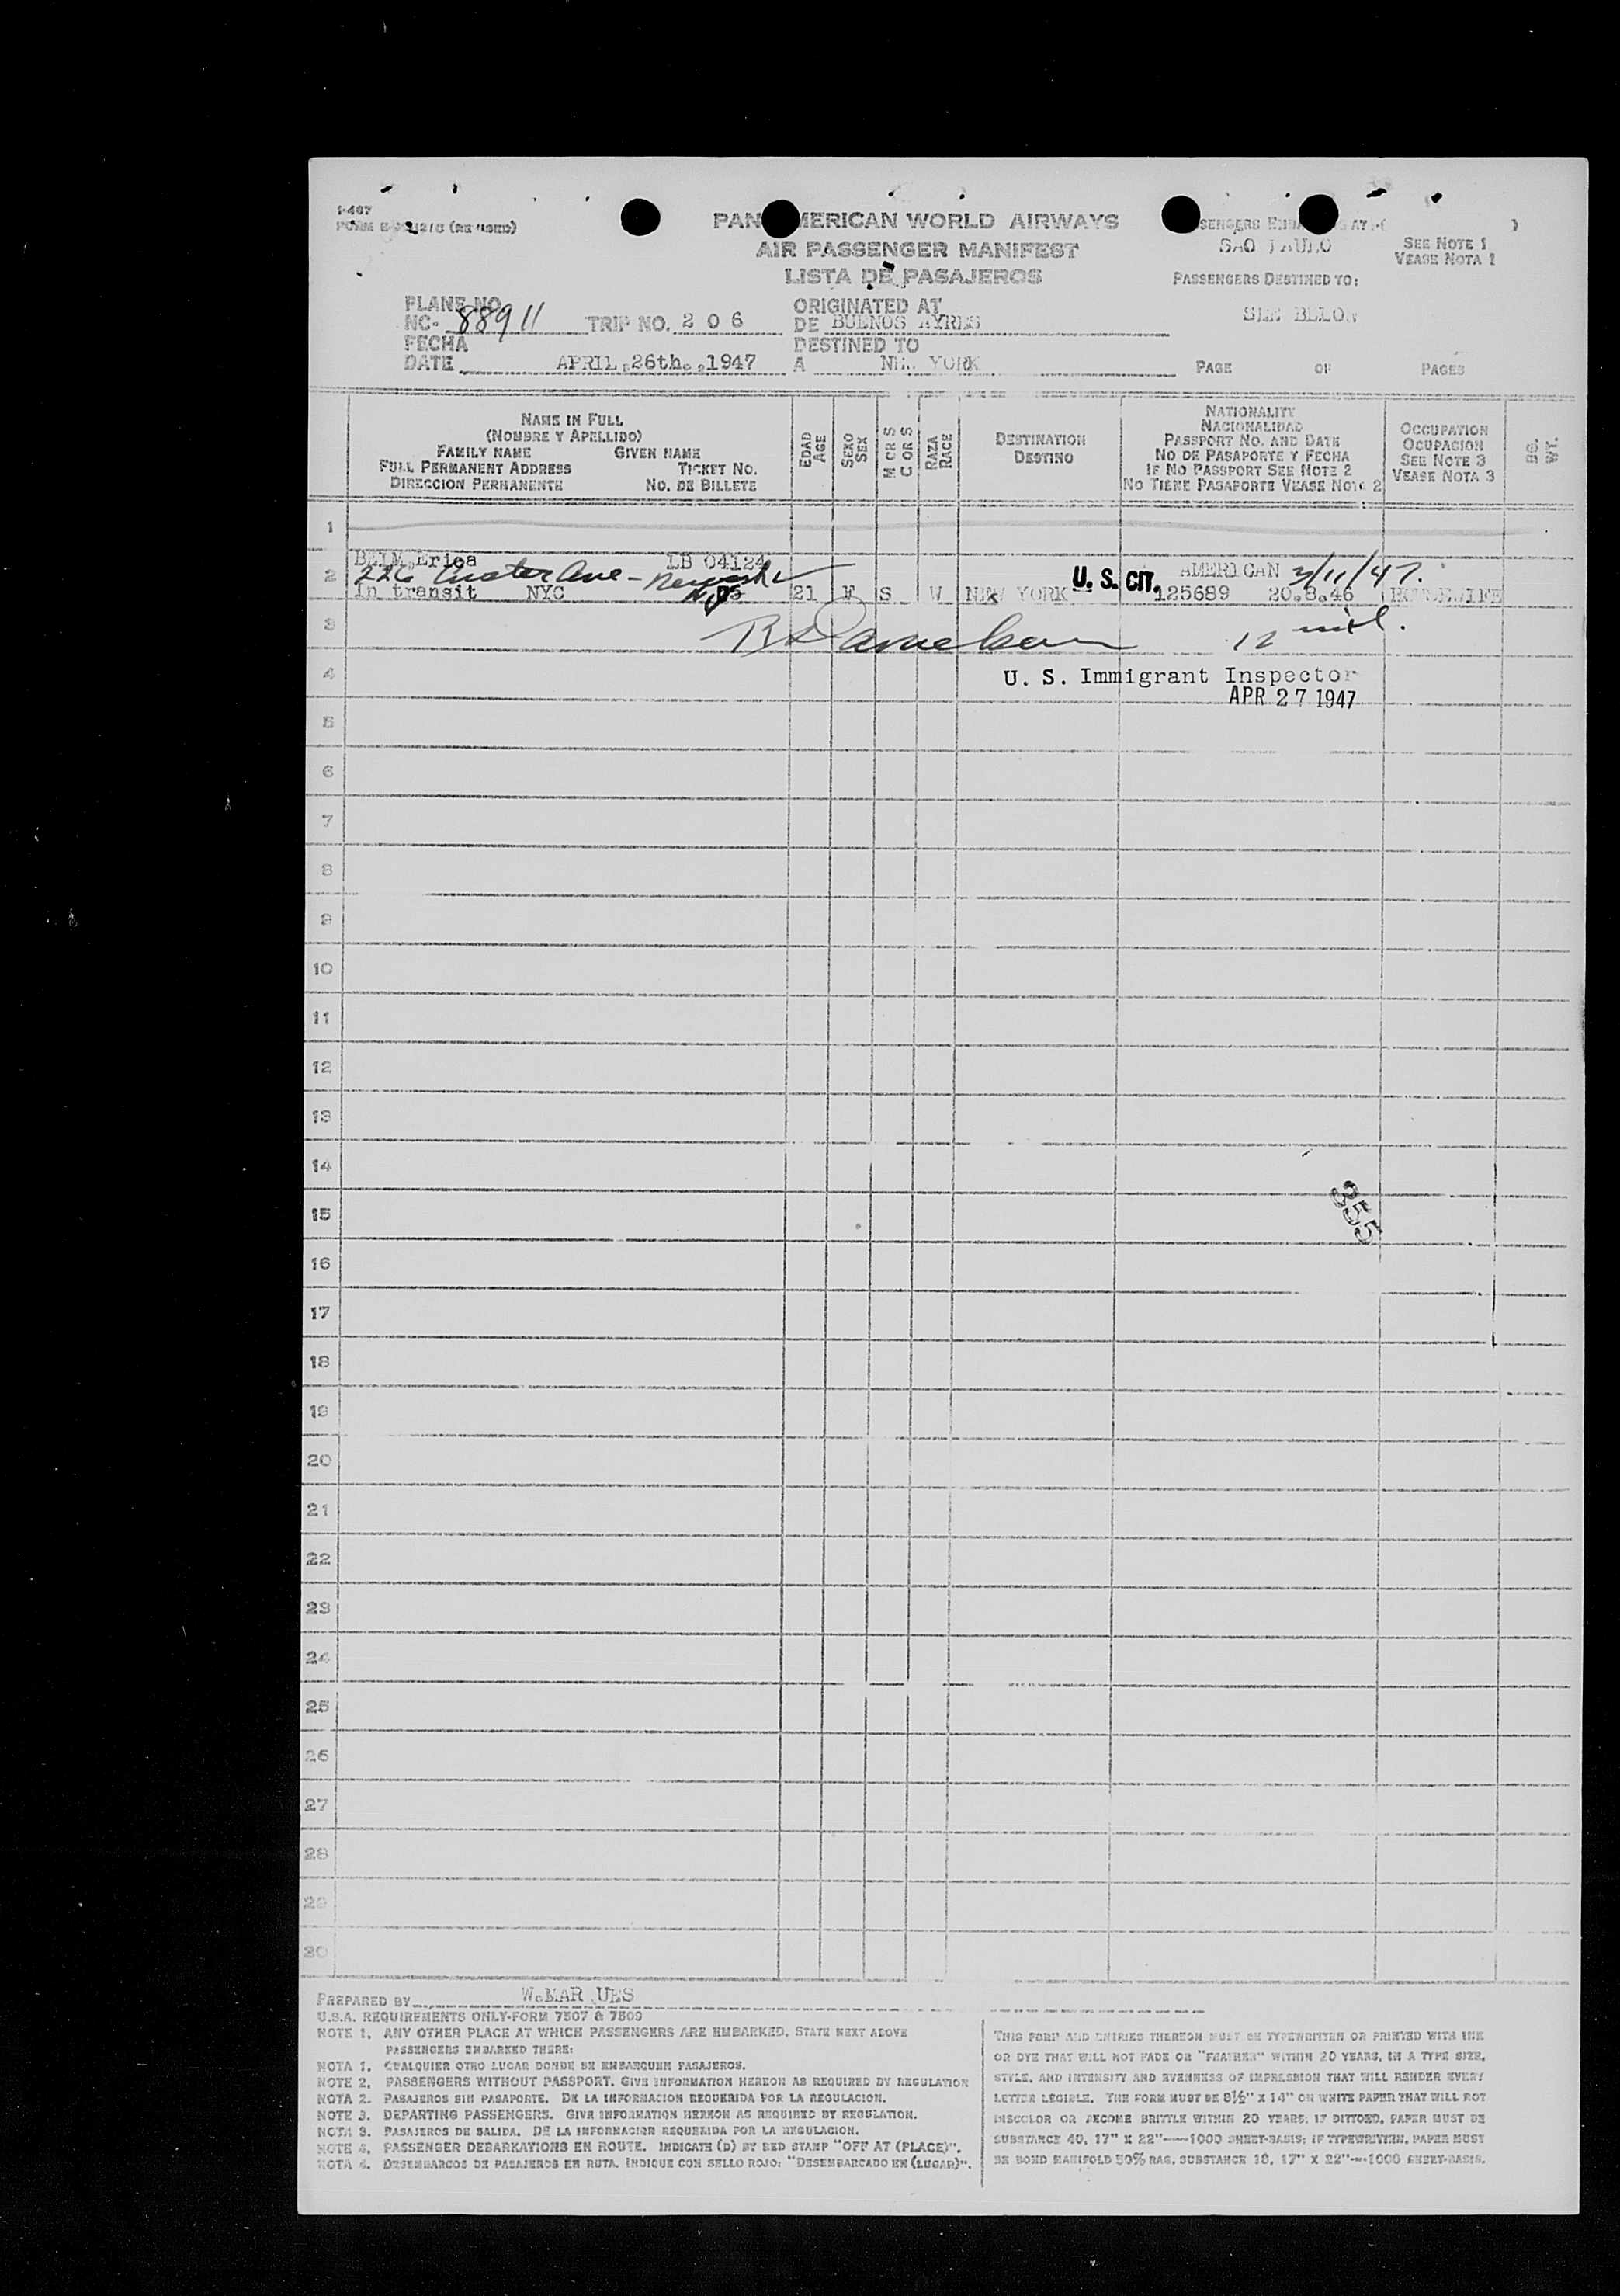 I-467
PAN AMERICAN WORLD AIRWAYS
AIR PASSENGER MANIFEST
LISTA DE PASAJEROS
SAO PAULO
SEE NOTE 1
VEASE NOTA 1
PASSENGERS DESTINED TO:
PLANE NO.
NC- 88911 TRIP NO. 2 0 6
ORIGINATED AT
DE BUENOS AYRES
FECHA
DATE APRIL 26th. 1947
DESTINED TO
A NEW YORK
PAGE OF PAGES
NAME IN FULL
(NOMBRE Y APELLIDO)
FAMILY NAME GIVEN NAME
FULL PERMANENT ADDRESS TICKET NO.
DIRECCION PERMANENTE NO. DE BILLETE
EDAD
AGE
SEXO
SEX
M OR S
C OR S
RAZA
RACE
DESTINATION
DESTINO
NATIONALITY
NACIONALIDAD
PASSPORT NO. AND DATE
NO DE PASAPORTE Y FECHA
IF NO PASSPORT SEE NOTE 2
NO TIENE PASAPORTE VEASE NOTA 2
OCCUPATION
OCUPACION
SEE NOTE 3
VEASE NOTA 3
BG.
WT.
1
Erica LB 04124
2 226 Custer Ave - Newark
AMERICAN 3/11/47.
U. S. CIT.
In transit NYC 21 F S W NEW YORK 125689 20.8.46 HOUSEWIFE
3 12
4 U. S. Immigrant Inspector
APR 27 1947
5
6
7
8
9
10
11
12
13
14
355
15
16
17
18
19
20
21
22
23
24
25
26
27
28
29
30
PREPARED BY
U.S.A. REQUIREMENTS ONLY-FORM 7507 & 7509
NOTE 1. ANY OTHER PLACE AT WHICH PASSENGERS ARE EMBARKED, STATE NEXT ABOVE
PASSENGERS EMBARKED THERE:
NOTA 1. CUALQUIER OTRO LUGAR DONDE SE EMBARQUEN PASAJEROS.
NOTE 2. PASSENGERS WITHOUT PASSPORT. GIVE INFORMATION HEREON AS REQUIRED BY REGULATION
NOTA 2. PASAJEROS SIN PASAPORTE. DE LA INFORMACION REQUERIDA POR LA REGULACION.
NOTE 3. DEPARTING PASSENGERS. GIVE INFORMATION HEREON AS REQUIRED BY REGULATION.
NOTA 3. PASAJEROS DE SALIDA. DE LA INFORMACION REQUERIDA POR LA REGULACION.
NOTE 4. PASSENGER DEBARKATIONS EN ROUTE. INDICATE (D) BY RED STAMP "OFF AT (PLACE)".
NOTA 4. DESEMBARCOS DE PASAJEROS EN RUTA. INDIQUE CON SELLO ROJO: "DESEMBARCADO EN (LUGAR)".
THIS FORM AND ENTRIES THEREON MUST BE TYPEWRITTEN OR PRINTED WITH INK
OR DYE THAT WILL NOT FADE OR "FEATHER" WITHIN 20 YEARS, IN A TYPE SIZE,
STYLE, AND INTENSITY AND EVENNESS OF IMPRESSION THAT WILL RENDER EVERY
LETTER LEGIBLE. THE FORM MUST BE 8½" X 14" ON WHITE PAPER THAT WILL NOT
DISCOLOR OR BECOME BRITTLE WITHIN 20 YEARS; IF DITTOED, PAPER MUST BE
SUBSTANCE 40, 17" X 22"—1000 SHEET-BASIS; IF TYPEWRITTEN, PAPER MUST
BE BOND MANIFOLD 50% RAG, SUBSTANCE 18, 17" X 22"—1000 SHEET-BASIS.